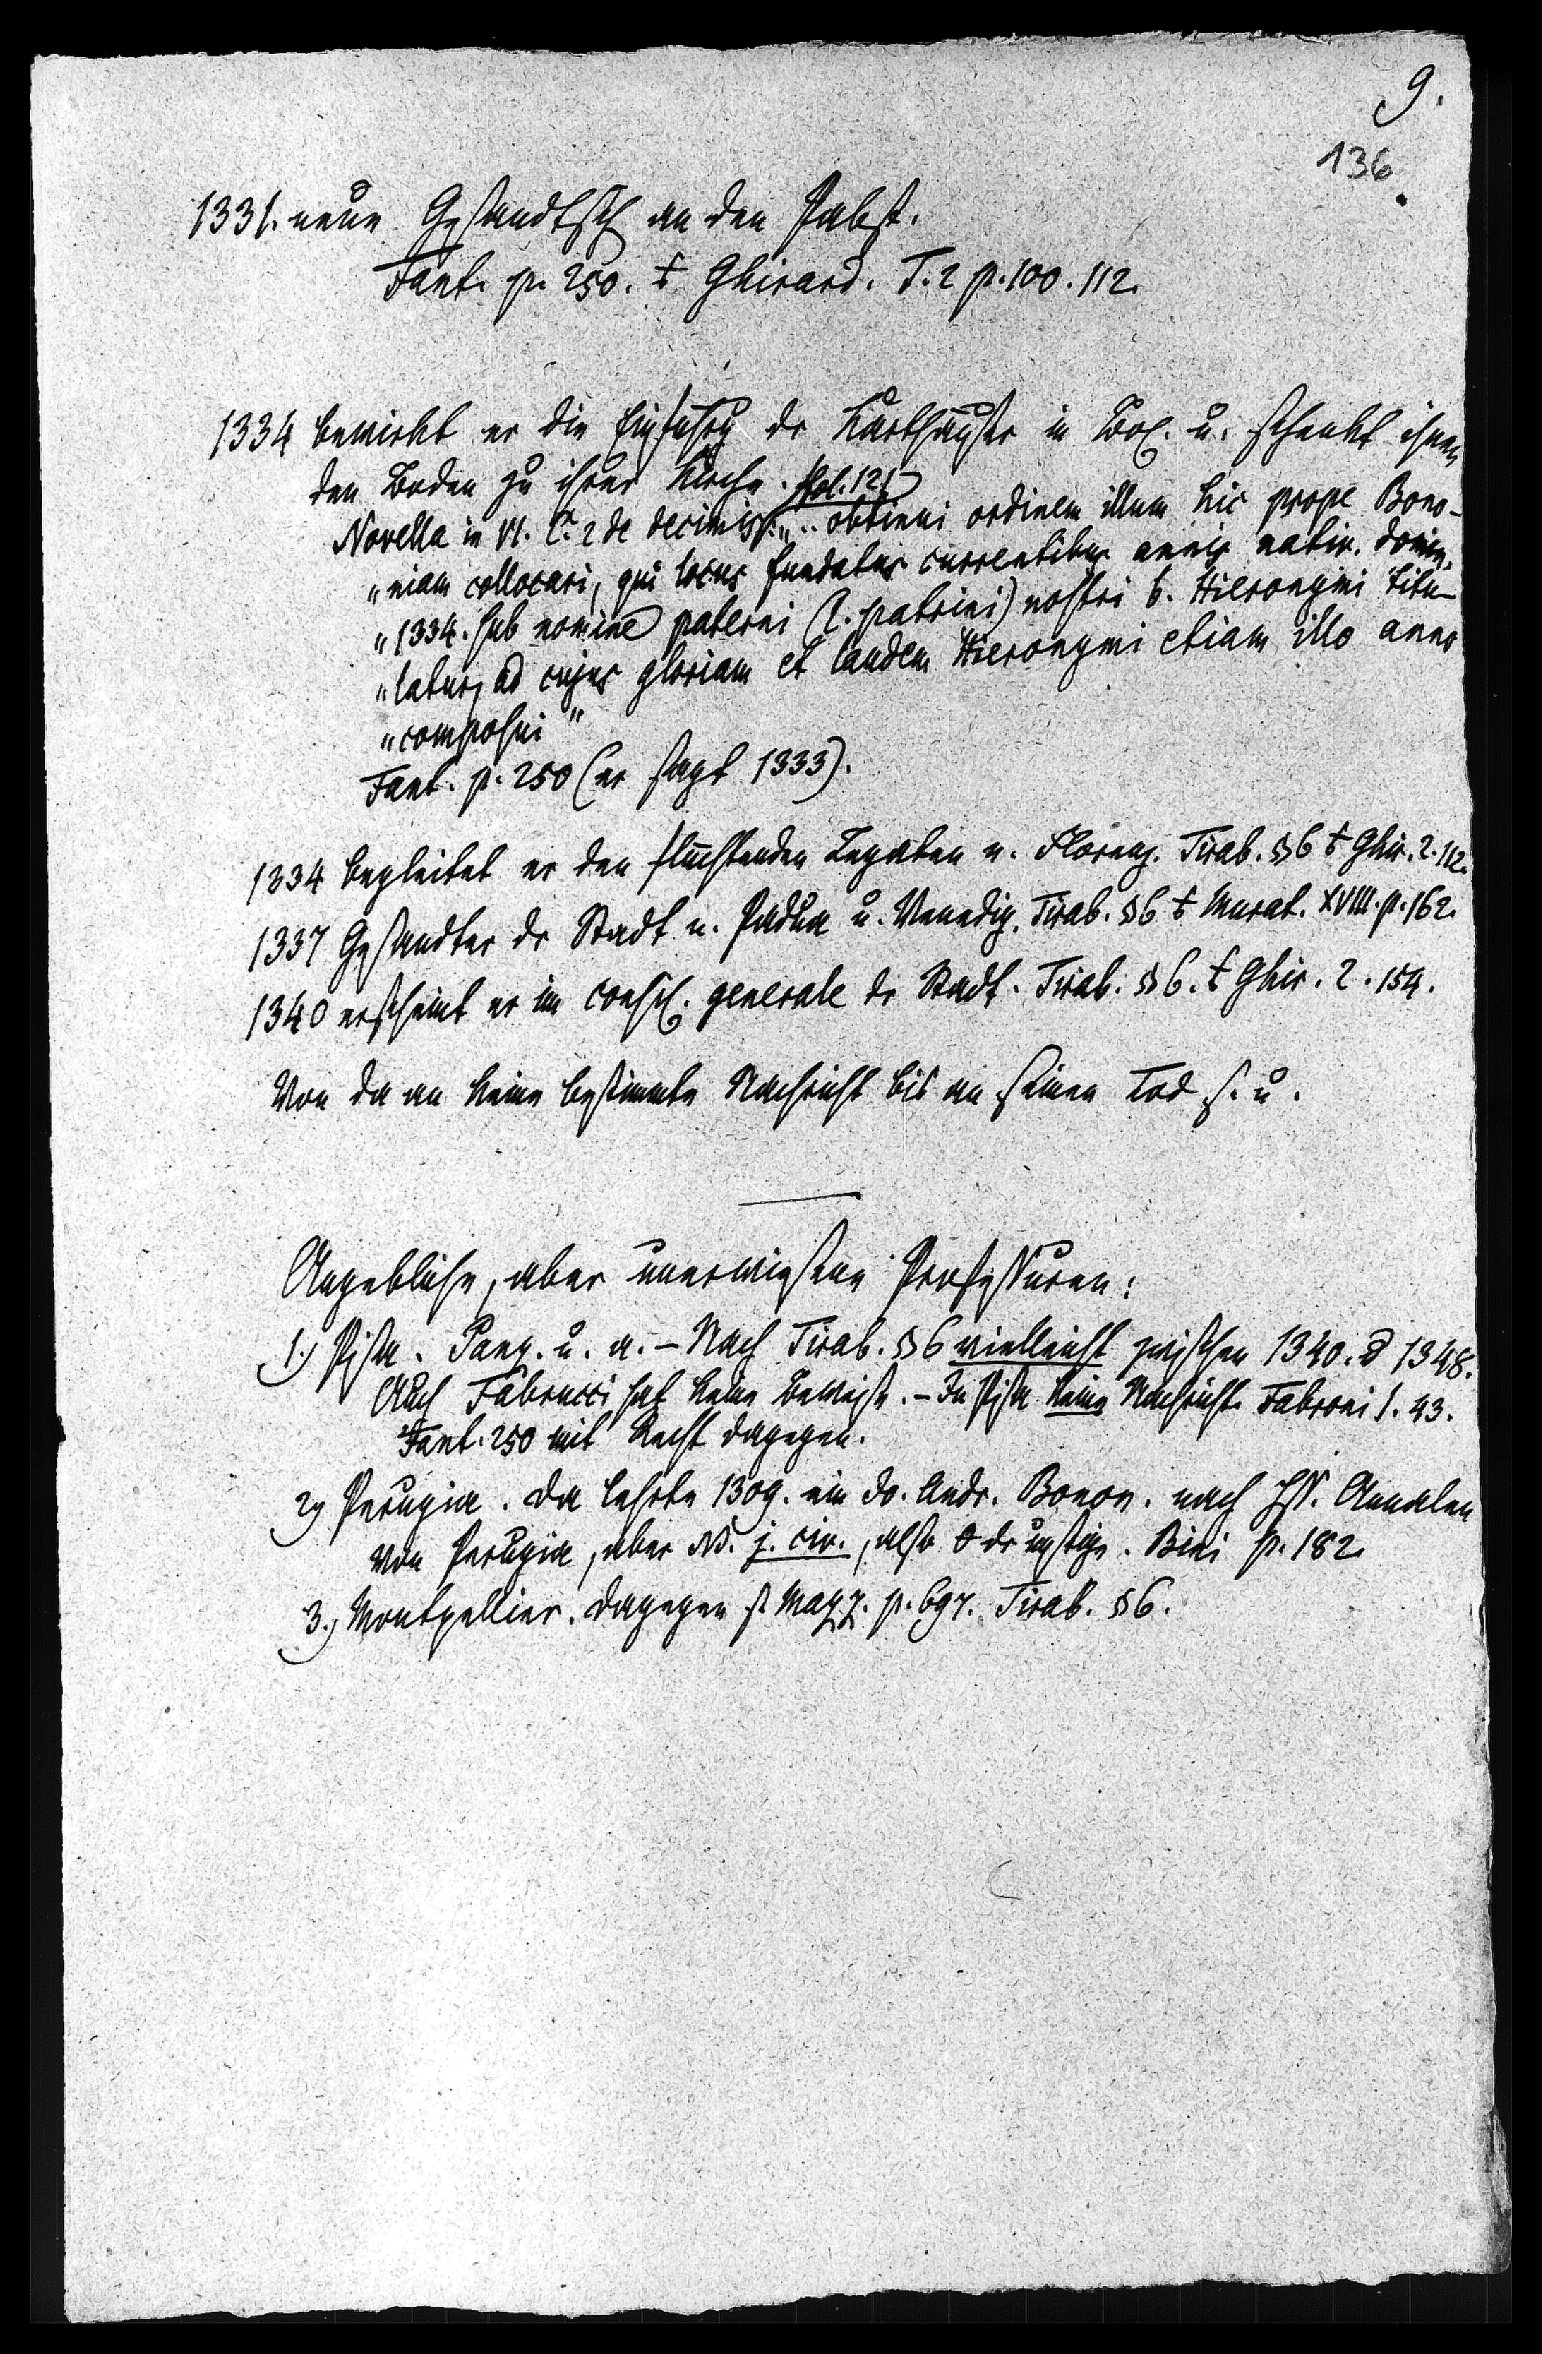 9.
136
1331. neue Gesandtsch an den Pabst.
Fant. p. 250. + Ghirard. T. 2 p. 100. 112.
1334 bewirkt er die Einführg der Karthäuser in Bol. u. schenkt ihnen
den Boden zu ihrer Kirche.
fol. 121
Novella in VI. C. 2 de decimis: „.. obtinui ordinem illum hic prope Bono-
„niam collocari, qui locus fundatus currentibus annis nativ. domin.
„1334. sub nomine paterni (l. patrini) nostri b. Hieronymi titu-
„latur, ad cujus gloriam et laudem Hieronymi etiam illo anno
„composui"
Fant. p. 250 (er sagt 1333).
1334 begleitet er den flüchtenden Legaten n. Florenz. Tirab. §6 + Ghir. 2. 112.
1337 Gesandter der Stadt n. Padua u. Venedig. Tirab. §6 + Murat. XVIII. p. 162.
1340 erscheint er im consil. generale der Stadt. Tirab. §6. + Ghir. 2. 154.
Von da an keine bestimmte Nachricht bis an seinen Tod s. u.
Angebliche, aber unerwiesene Professuren:
1.) Pisa. Panz. u. a. – Nach Tirab. §6 vielleicht zwischen 1340. & 1348.
Auch Fabrucci hat keine Beweise. – In Pisa keine Nachricht. Fabroni 1. 43.
Fant. 250 mit Recht dagegen.
2) Perugia. Da lehrte 1309. ein Jo. Andr. Bonon. nach hss. Annalen
von Perugia, aber NB. j. civ., also der unsrige. Bini p. 182.
3.) Montpellier. dagegen s. Mazz. p. 697. Tirab. §6.